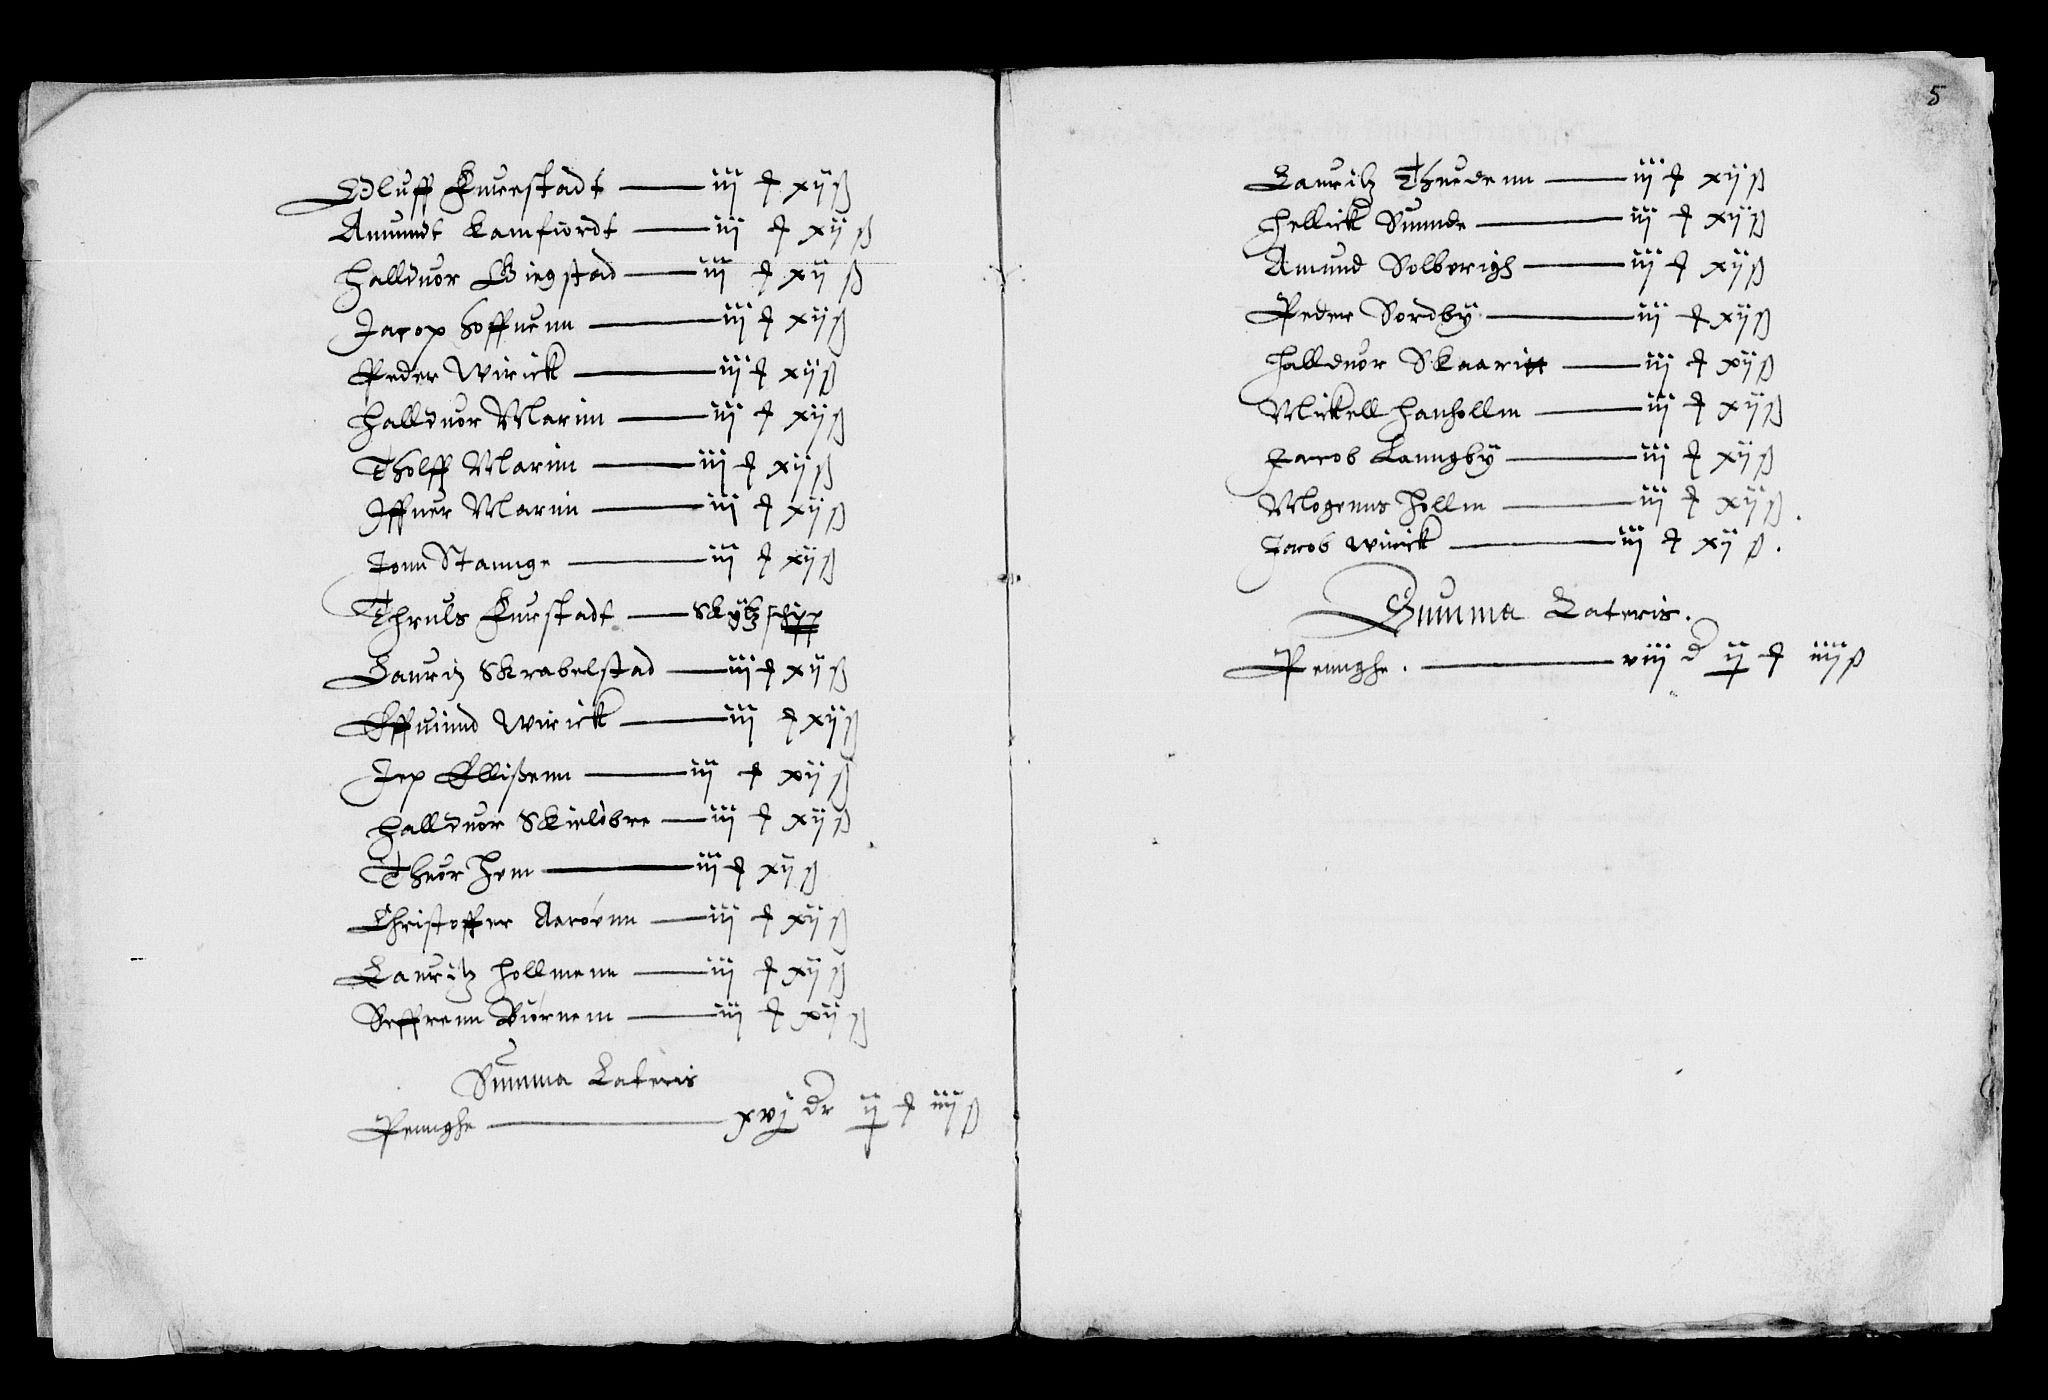 Oluff Knrestadt —— iij ₰ xij ß
Amundt Kamfiordt —— iij ₰ xij ß
Halduor Giegstad —— iij ₰ xij ß
Jacop Hoffuenn —— iij ₰ xij ß
Peder Wirick —— iij ₰ xij ß
Halduor Marim —— iij ₰ xij ß
Tholff Marim —— iij ₰ xij ß
Iffuer Marim —— iij ₰ xij ß
Jonn Stannge —— iij ₰ xij ß
Thruls Knrstadt —— Skytz
Lauritz Skrabelstad —— iij ₰ xij ß
Effuind Wirick —— iij ₰ xij ß
Jep Ellißenn —— iij ₰ xij ß
Halduor Skieldbre —— iij ₰ xij ß
Thuor Hem —— iij ₰ xij ß
Christoffer Aarøenn —— iij ₰ xij ß
Lauritz Hollmenn —— iij ₰ xij ß
Seffrenn Biørnem —— iij ₰ xij ß
Summa Lateris
Pennghe —— xvj dr ij ₰ iiij ß
5
Lauritz Thuedenn —— iij ₰ xij ß
Hellick Sunnde —— iij ₰ xij ß
Amund Solberigh —— iij ₰ xij ß
Peder Nordby —— iij ₰ xij ß
Halduor Skaaritt —— iij ₰ xij ß
Mickell Hanhollm —— iij ₰ xij ß
Jacob Lanngby —— iij ₰ xij ß
Mogenns Hollm —— iij ₰ xij ß.
Jacob Wirick —— iij ₰ xij ß.
Summa Lateris.
Pennghe. —— viij d ij ₰ iiij ß